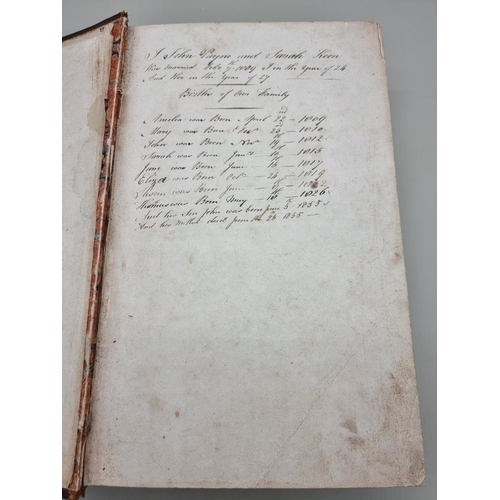 I John Payne and Sarah Keen
Was Married Feby 7th 1809 I in the Year of 24
And Her in the Year of 27
Births of Our Family
Amelia was Born April 22nd - 1809
Mary was Born Octr 23 - 1810
John was Born Novr 19 - 1812
Sarah was Born Jany 10th - 1815
Jane was Born June 15th - 1817
was Born Octr - 24 - 1819
was Born June
Thomas was Born May 10th - 1826
And his Son John was born June 5th 1855
And his Mother died June the 24 1855